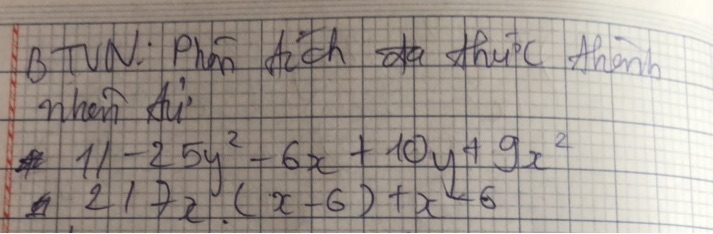 BTVN: Phân tích đa thức thành
nhân tử
1/ -25y² - 6x + 10y + 9x²
2/ 7x.(x-6)+x-6